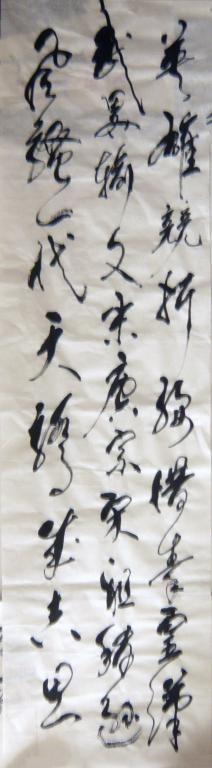 英雄競折腰惜秦皇漢
武畧輸文采唐宗宋祖稍遜
風騷一代天驕成吉思